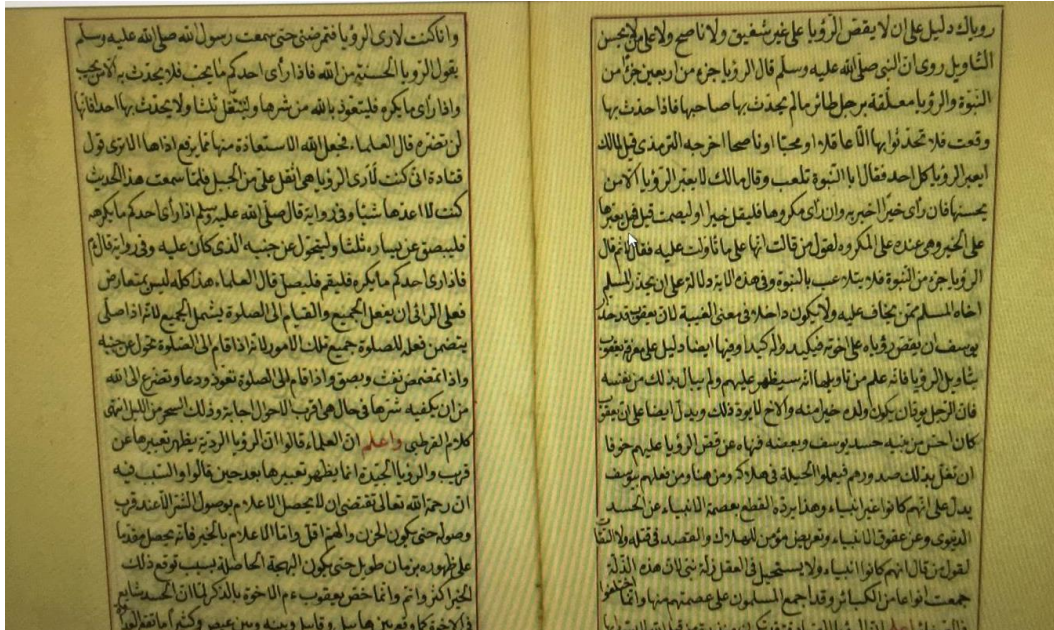 روياك دليل على ان لا يقص الرؤيا على غير شفيق ولا ناصح ولا على من لا يحسن
التاويل روى ان النبى صلى الله عليه وسلم قال الرؤيا جزء من اربعين جزءا من
النبوة والرؤيا معلقة برجل طائر مالم يحدث بها صاحبها فاذا حدث بها
وقعت فلا تحدثوا بها الا عاقلا او محبا او ناصحا اخرجه الترمذى قيل لمالك
ايعبر الرؤيا كل احد فقال ابا النبوة تلعب وقال مالك لا يعبر الرؤيا الا من
يحسنها فان راى خيرا اخبر به وان راى مكروها فليقل خيرا او ليصمت قيل فهل يعبرها
على الخير وهى عنده على المكروه لقول من قال انها على ما تاولت عليه فقال لا ثم قال
الرؤيا جزء من النبوة فلا يتلاعب بالنبوة وفى هذه الاية دلالة على ان يحذر المسلم
اخاه المسلم ممن يخاف عليه ولا يكون داخلا فى معنى الغيبة لان يعقوب قد حذر
يوسف ان يقص رؤياه على اخوته فيكيدوا له كيدا وفيها ايضا دليل على معرفة يعقوب
بتاويل الرؤيا فانه علم من تاويلها انه سيظهر عليهم ولم يبال بذلك من نفسه
فان الرجل يود ان يكون ولده خيرا منه والاخ لا يود ذلك ويدل ايضا على ان يعقوب
كان احس من بنيه حسد يوسف وبغضه فنهاه عن قص الرؤيا عليهم خوفا
ان تغل بذلك صدورهم فيعملوا الحيلة فى هلاكه ومن هنا ومن فعلهم بيوسف
يدل على انهم كانوا غير انبياء وهذا يرده القطع بعصمة الانبياء عن الحسد
الدنيوى وعن عقوق الانبياء وتعريض مؤمن للهلاك والقصد فى قتله ولا التفات
لقول من قال انهم كانوا انبياء ولا يستحيل فى العقل زلة نبى لان هذه الزلة
جمعت انواعا من الكبائر وقد اجمع المسلمون على عصمتهم منها وانما اختلفوا
وانا كنت لارى الرؤيا فتمرضنى حتى سمعت رسول الله صلى الله عليه وسلم
يقول الرويا الحسنة من الله فاذا رأى احدكم ما يحب فلا يحدث به الا من يحب
واذا راى ما يكره فليتعوذ بالله من شرها وليتفل ثلثا ولا يحدث بها احدا فانها
لن تضره قال العلماء فجعل الله الاستعاذة منها مما يرفع اذاها الا ترى قول
قتادة انى كنت لارى الرؤيا هى اثقل على من الجبل فلما سمعت هذا الحديث
كنت لا اعدها شيئا وفى رواية قال صلى الله عليه وسلم اذا راى احدكم ما يكرهه
فليبصق عن يساره ثلثا وليتحول عن جنبه الذى كان عليه وفى رواية قال عم
فاذا راى احدكم ما يكره فليقم فليصل قال العلماء هذا كله ليس بمتعارض
فعلى الرائى ان يفعل الجميع والقيام الى الصلوة يشمل الجميع لانه اذا صلى
يتضمن فعله للصلوة جميع تلك الامور لانه اذا قام الى الصلوة تحول عن جنبه
واذا تمضمض نفث وبصق واذا قام الى الصلوة تعوذ ودعا وتضرع الى الله
من ان يكفيه شرها فى حال هى اقرب الاحوال اجابة وذلك السحر من الليل انتهى
كلام القرطبى واعلم ان العلماء قالوا ان الرويا الردية يظهر تعبيرها عن
قريب والرويا الجيدة انما يظهر تعبيرها بعد حين قالوا والسبب فيه
ان رحمة الله تعالى تقتضى ان لا يحصل الاعلام بوصول الشر الا عند قرب
وصوله حتى يكون الحزن والهم اقل واما الاعلام بالخير فانه يحصل مقدما
على ظهوره بزمان طويل حتى يكون البهجة الحاصلة بسبب توقع ذلك
الخير اكثر واتم وانما خص يعقوب عم الاخوة بالذكر لما ان الحسد شايع